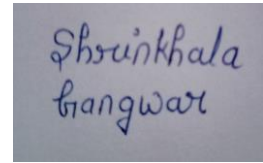 Shrinkhala
Gangwar